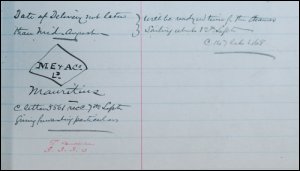 Date of Delivery not later
than Mid. August
will be ready in time for the steamer
Sailing which
M.E.Y & Co.
Ld
Mauritius
C. letter 3561 rec'd 7th Septr
Giving forwarding particulars